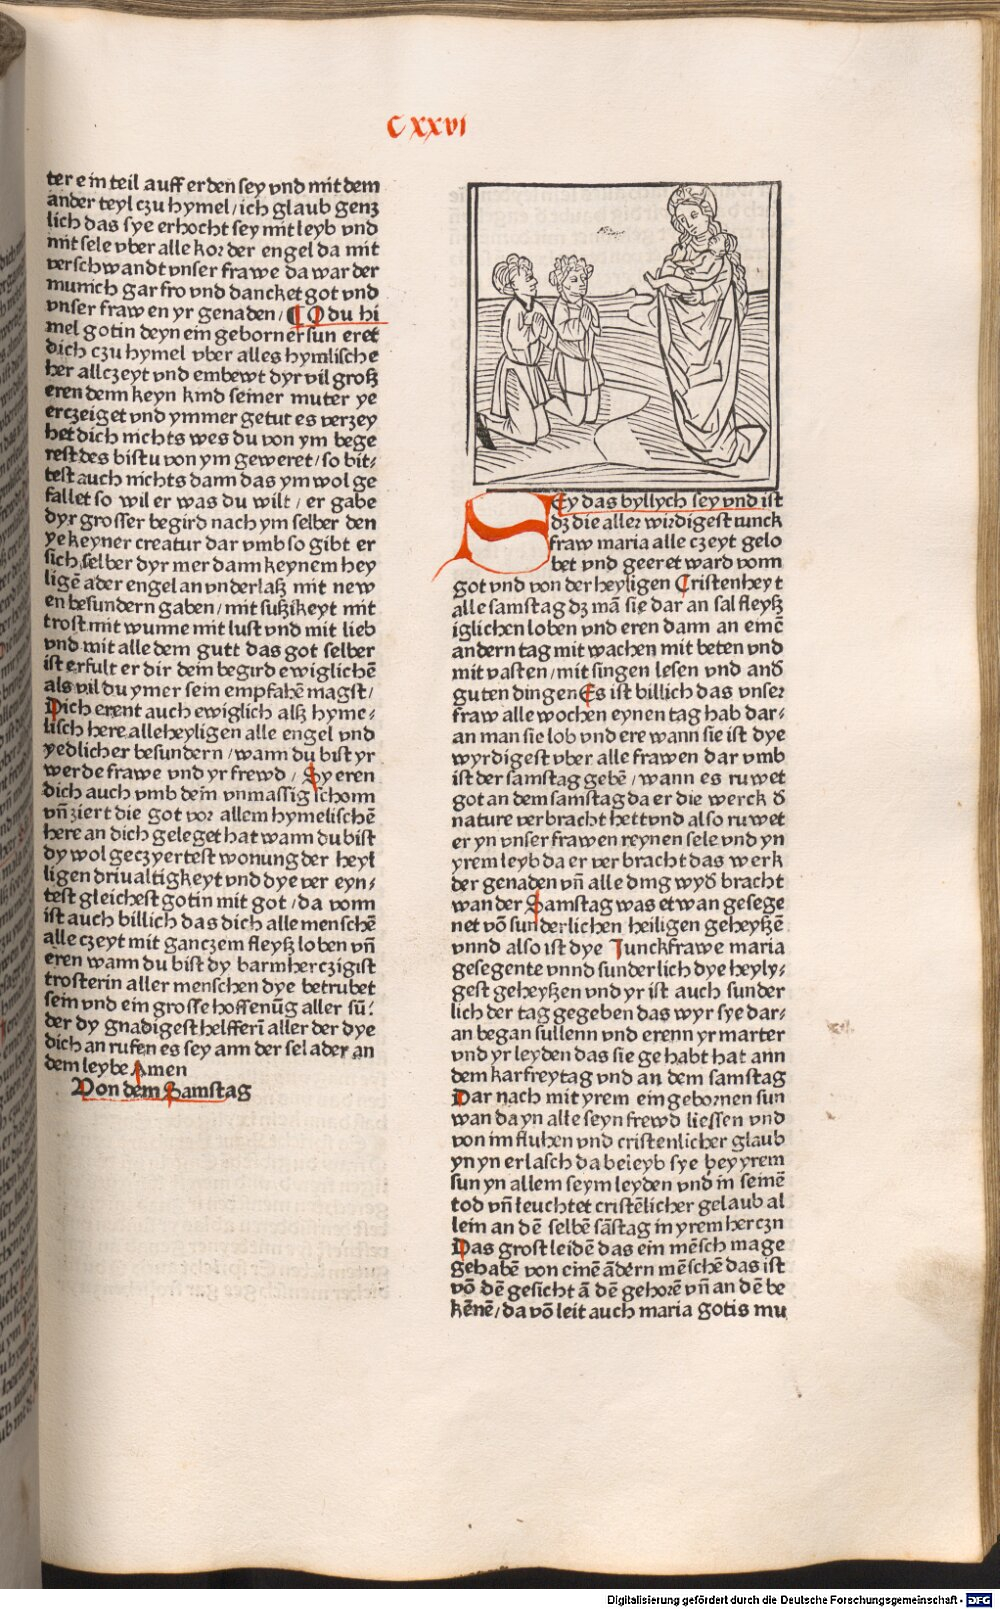 CXXVI
ter ein teil auff erden sey vnd mit dem
ander teyl czu hymel/ich glaub genz
lich das sye erhocht sey mit leyb vnd
mit sele vber alle kor der engel da mit
verschwandt vnser frawe da war der
munich gar fro vnd dancket got vnd
vnser frawen yr genaden/ ¶ O du hi
mel gotin deyn ein geborner sun eret
dich czu hymel vber alles hymlische
her allczeyt vnd embewt dyr vil groß
eren denn keyn kind seiner muter ye
erczeiget vnd ymmer getut es verzey
het dich nichts wes du von ym bege
rest des bistu von ym geweret/so bit⸗
test auch nichts dann das ym wol ge
fallet so wil er was du wilt/er gabe
dyr grosser begird nach ym selber den
ye keyner creatur dar vmb so gibt er
sich selber dyr mer dann keynem hey
ligē ader engel an vnderlaß mit new
en besundern gaben/mit sußikeyt mit
trost mit wunne mit lust vnd mit lieb
vnd mit alle dem gutt das got selber
ist erfult er dir dem begird ewiglichē
als vil du ymer sein empfahē magst/
Dich erent auch ewiglich alß hyme⸗
lisch here alle heyligen alle engel vnd
yedlicher besundern/wann du bist yr
werde frawe vnd yr frewd/Sy eren
dich auch vmb dein vnmassig schonn
vñ ziert die got vor allem hymelischē
here an dich geleget hat wann du bist
dy wol geczyertest wonung der heyl
ligen driualtigkeyt vnd dye ver eyn⸗
test gleichest gotin mit got/da vonn
ist auch billich das dich alle menschē
alle czeyt mit ganczem fleyß loben vñ
eren wann du bist dy barmherczigist
trosterin aller menschen dye betrubet
sein vnd ein grosse hoffenūg aller sū⸗
der dy gnadigest helfferī aller der dye
dich an rufen es sey ann der sel ader an
dem leybe Amen
Von dem Samstag
SEy das byllych sey vnd ist
dz die aller wirdigest iunck
fraw maria alle czeyt gelo
bet vnd geeret ward vonn
got vnd von der heyligen Cristenheyt
alle samstag dz mā sie dar an sal fleyß
iglichen loben vnd eren dann an emē
andern tag mit wachen mit beten vnd
mit vasten/mit singen lesen vnd and̄
guten dingen Es ist billich das vnser
fraw alle wochen eynen tag hab dar⸗
an man sie lob vnd ere wann sie ist dye
wyrdigest vber alle frawen dar vmb
ist der samstag gebē/wann es ruwet
got an dem samstag da er die werck d̄
nature verbracht hett vnd also ruwet
er yn vnser frawen reynen sele vnd yn
yrem leyb da er verbracht das werk
der genaden vñ alle ding wyd̄ bracht
wan der Samstag was etwan gesege
net vō sunderlichen heiligen geheyßē
vnnd also ist dye Junckfrawe maria
gesegente vnnd sunderlich dye heyly⸗
gest geheyßen vnd yr ist auch sunder
lich der tag gegeben das wyr sye dar⸗
an began sullenn vnd erenn yr marter
vnd yr leyden das sie gehabt hat ann
dem karfreytag vnd an dem samstag
Dar nach mit yrem eingebornen sun
wan da yn alle seyn frewd liessen vnd
von im fluhen vnd cristenlicher glaub
yn yn erlasch da beleyb sye bey yrem
sun yn allem seym leyden vnd in seinē
tod vñ leuchtet cristēlicher gelaub al
lein an dē selbē sāstag in yrem herczn
Das grost leidē das ein mēsch mage
gehabē von einē ādern mēschē das ist
vō dē gesicht ā dē gehorē vñ an dē be
kēnē/da vō leit auch maria gotis mu
Digitalisierung gefördert durch die Deutsche Forschungsgemeinschaft - DFG